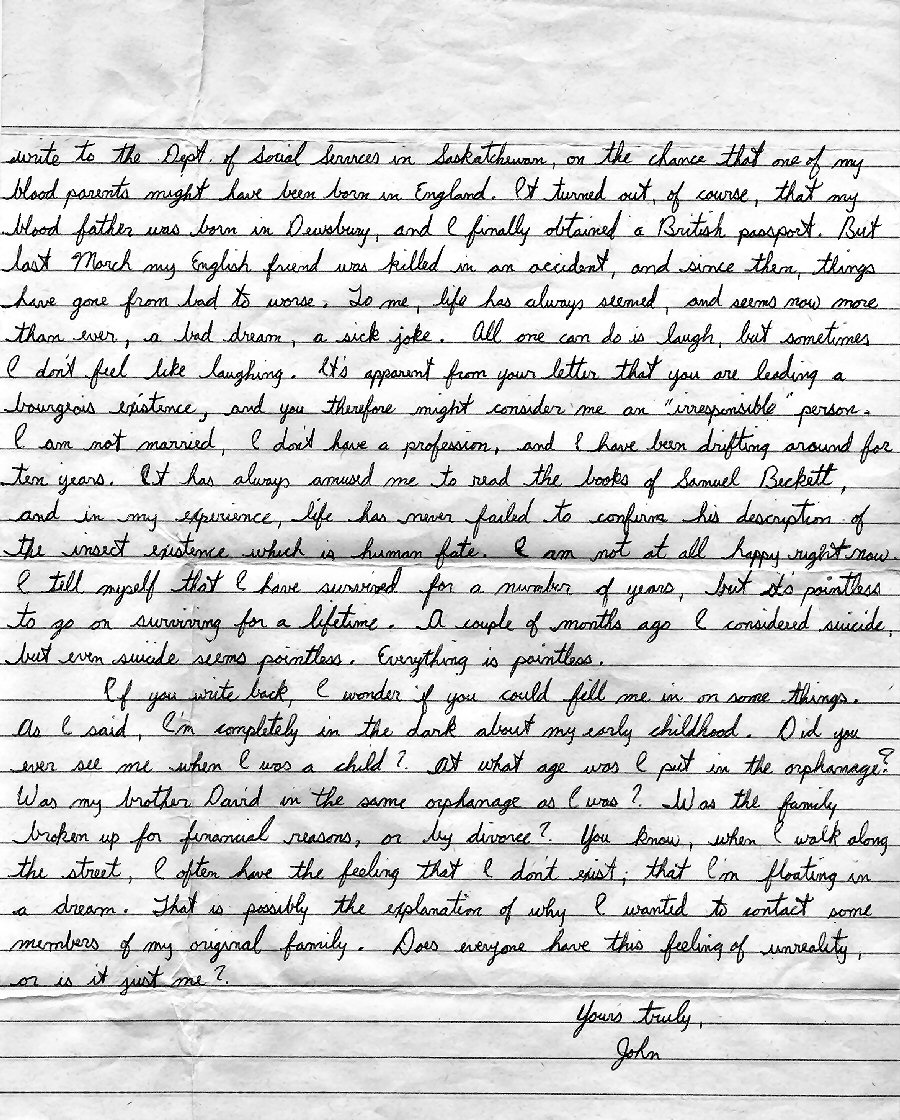 write to the Dept. of Social Services in Saskatchewan, on the chance that one of my
blood parents might have been born in England. It turned out, of course, that my
blood father was born in Dewsbury, and I finally obtained a British passport. But
last March my English friend was killed in an accident, and since then, things
have gone from bad to worse. To me, life has always seemed, and seems now more
than ever, a bad dream, a sick joke. All one can do is laugh, but sometimes
I don't feel like laughing. It's apparent from your letter that you are leading a
bourgeois existence, and you therefore might consider me an "irresponsible" person.
I am not married, I don't have a profession, and I have been drifting around for
ten years. It has always amused me to read the books of Samuel Beckett,
and in my experience, life has never failed to confirm his description of
the insect existence which is human fate. I am not at all happy right now.
I tell myself that I have survived for a number of years, but it's pointless
to go on surviving for a lifetime. A couple of months ago I considered suicide,
but even suicide seems pointless. Everything is pointless.
If you write back, I wonder if you could fill me in on some things.
As I said, I'm completely in the dark about my early childhood. Did you
ever see me when I was a child? At what age was I put in the orphanage?
Was my brother David in the same orphanage as I was? Was the family
broken up for financial reasons, or by divorce? You know, when I walk along
the street, I often have the feeling that I don't exist; that I'm floating in
a dream. That is possibly the explanation of why I wanted to contact some
members of my original family. Does everyone have this feeling of unreality,
or is it just me?
Yours truly,
John